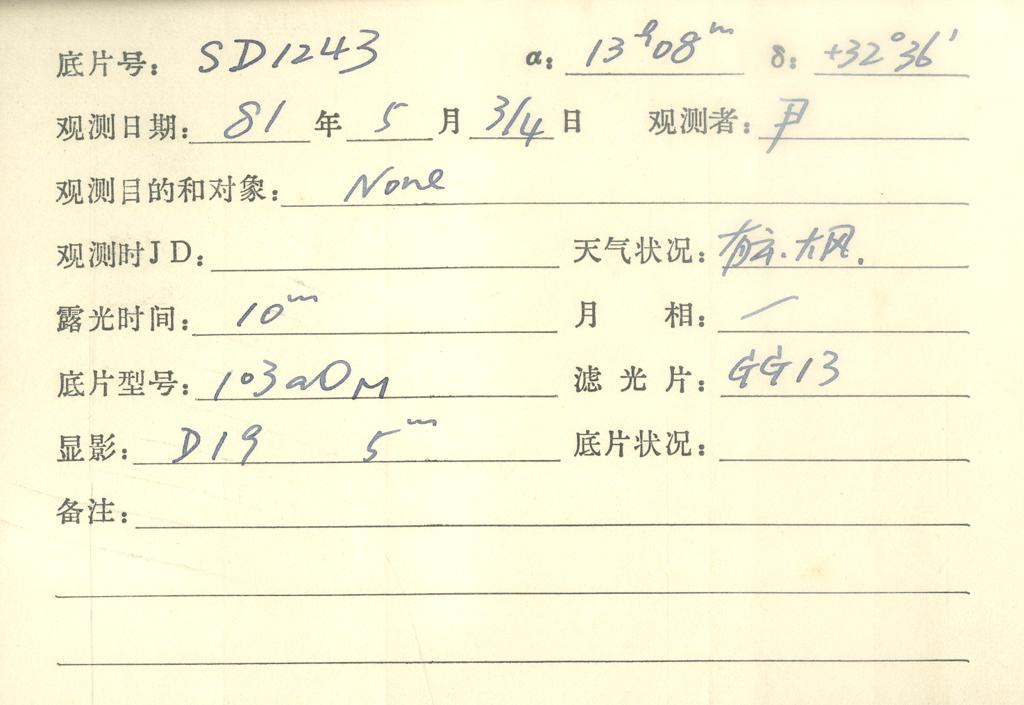 底片号: SD1243 α: 13ʰ08ᵐ δ: +32°36′
观测日期: 81 年 5 月 3/4 日 观测者: 尹
观测目的和对象: None
观测时JD: 天气状况: 有云.大风.
露光时间: 10ᵐ 月 相: 一
底片型号: 103aO M 滤光片: GG13
显影: D19 5ᵐ 底片状况:
备注: